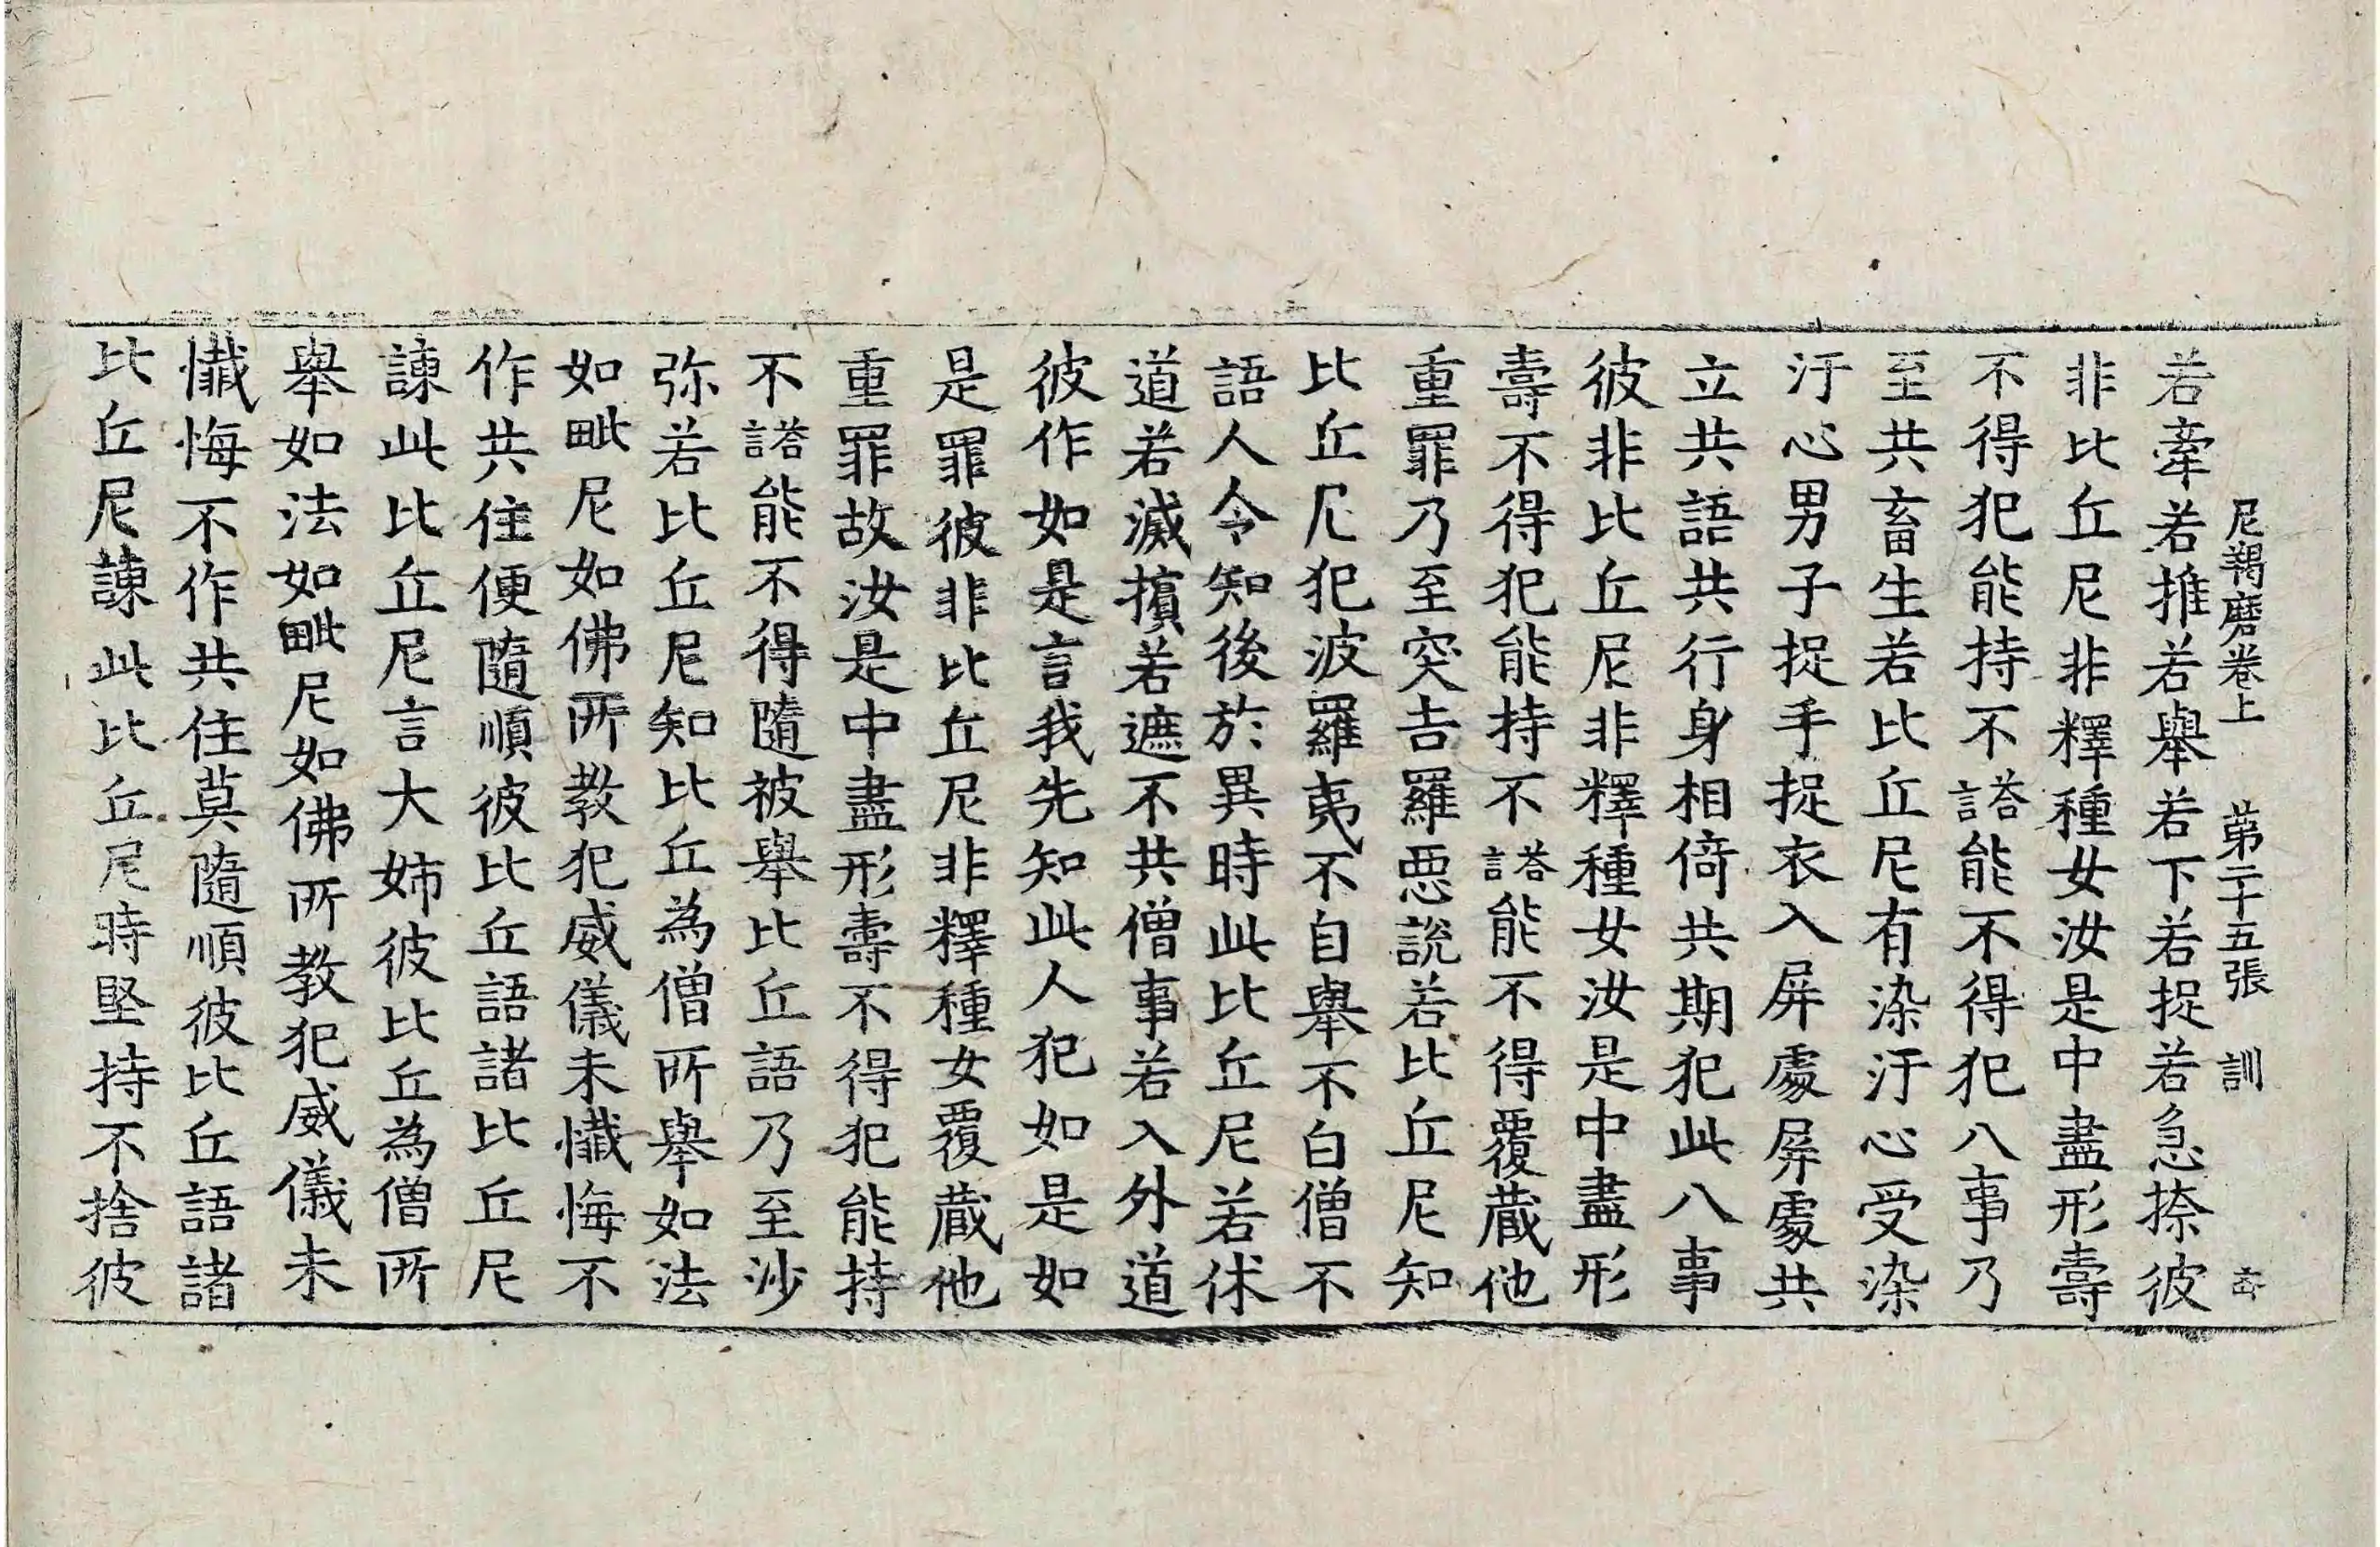 尼羯磨卷上 第二十五張 訓
若牽若推若舉若下若捉若急捺彼
非比丘尼非釋種女汝是中盡形壽
不得犯能持不誩能不得犯八事乃
至共畜生若比丘尼有染汙心受染
汙心男子捉手捉衣入屏處屏處共
立共語共行身相倚共期犯此八事
彼非比丘尼非釋種女汝是中盡形
壽不得犯能持不䜚能不得覆蔵他
重罪乃至突吉羅惡說若比丘尼知
比丘尼犯波羅夷不自舉不白僧不
語人令知後於異時此比丘尼若休
道若滅擯若遮不共僧事若入外道
彼作如是言我先知此人犯如是如
是罪彼非比丘尼非釋種女覆蔵他
重罪故汝是中盡形壽不得犯能持
不䜚能不得隨被舉比丘語乃至沙
弥若比丘尼知比丘為僧所舉如法
如毗尼如佛所教犯威儀未懺悔不
作共住便隨順彼比丘語諸比丘尼
諫此比丘尼言大姊彼比丘為僧所
舉如法如毗尼如佛所教犯威儀未
懺悔不作共住莫隨順彼比丘語諸
比丘尼諫此比丘尼時堅持不捨彼